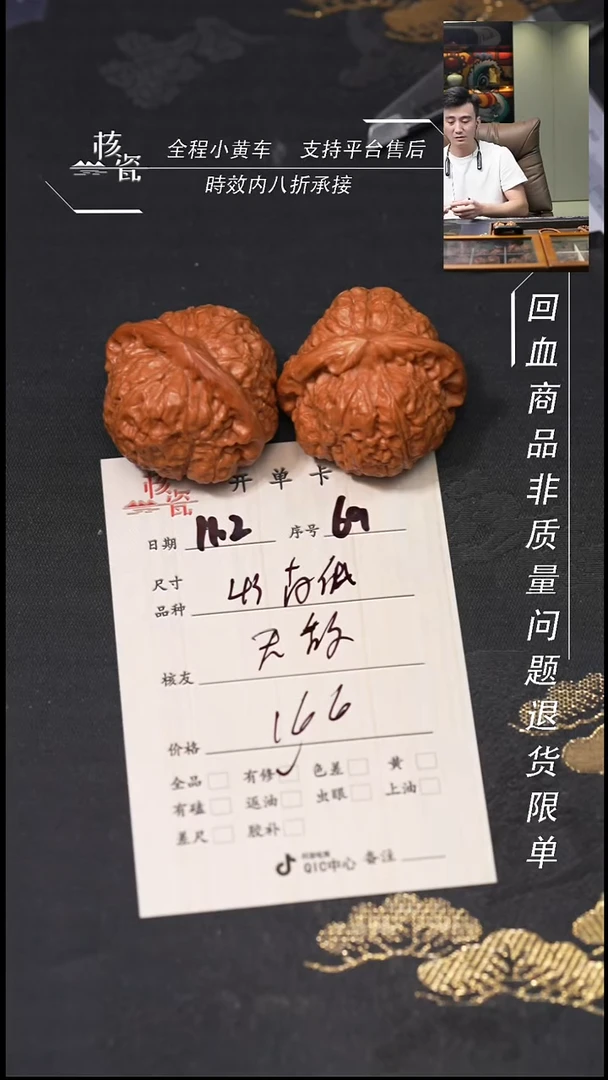 核瓷
全程小黄车 支持平台售后
時效内八折承接
回血商品非质量问题退货限单
核瓷 开单卡
日期 11.2 序号 69
尺寸
品种
核友
价格 166
全品 有修 ✓ 色差 黄
有磕 返油 虫眼 上油
差尺 胶补
QIC中心 备注